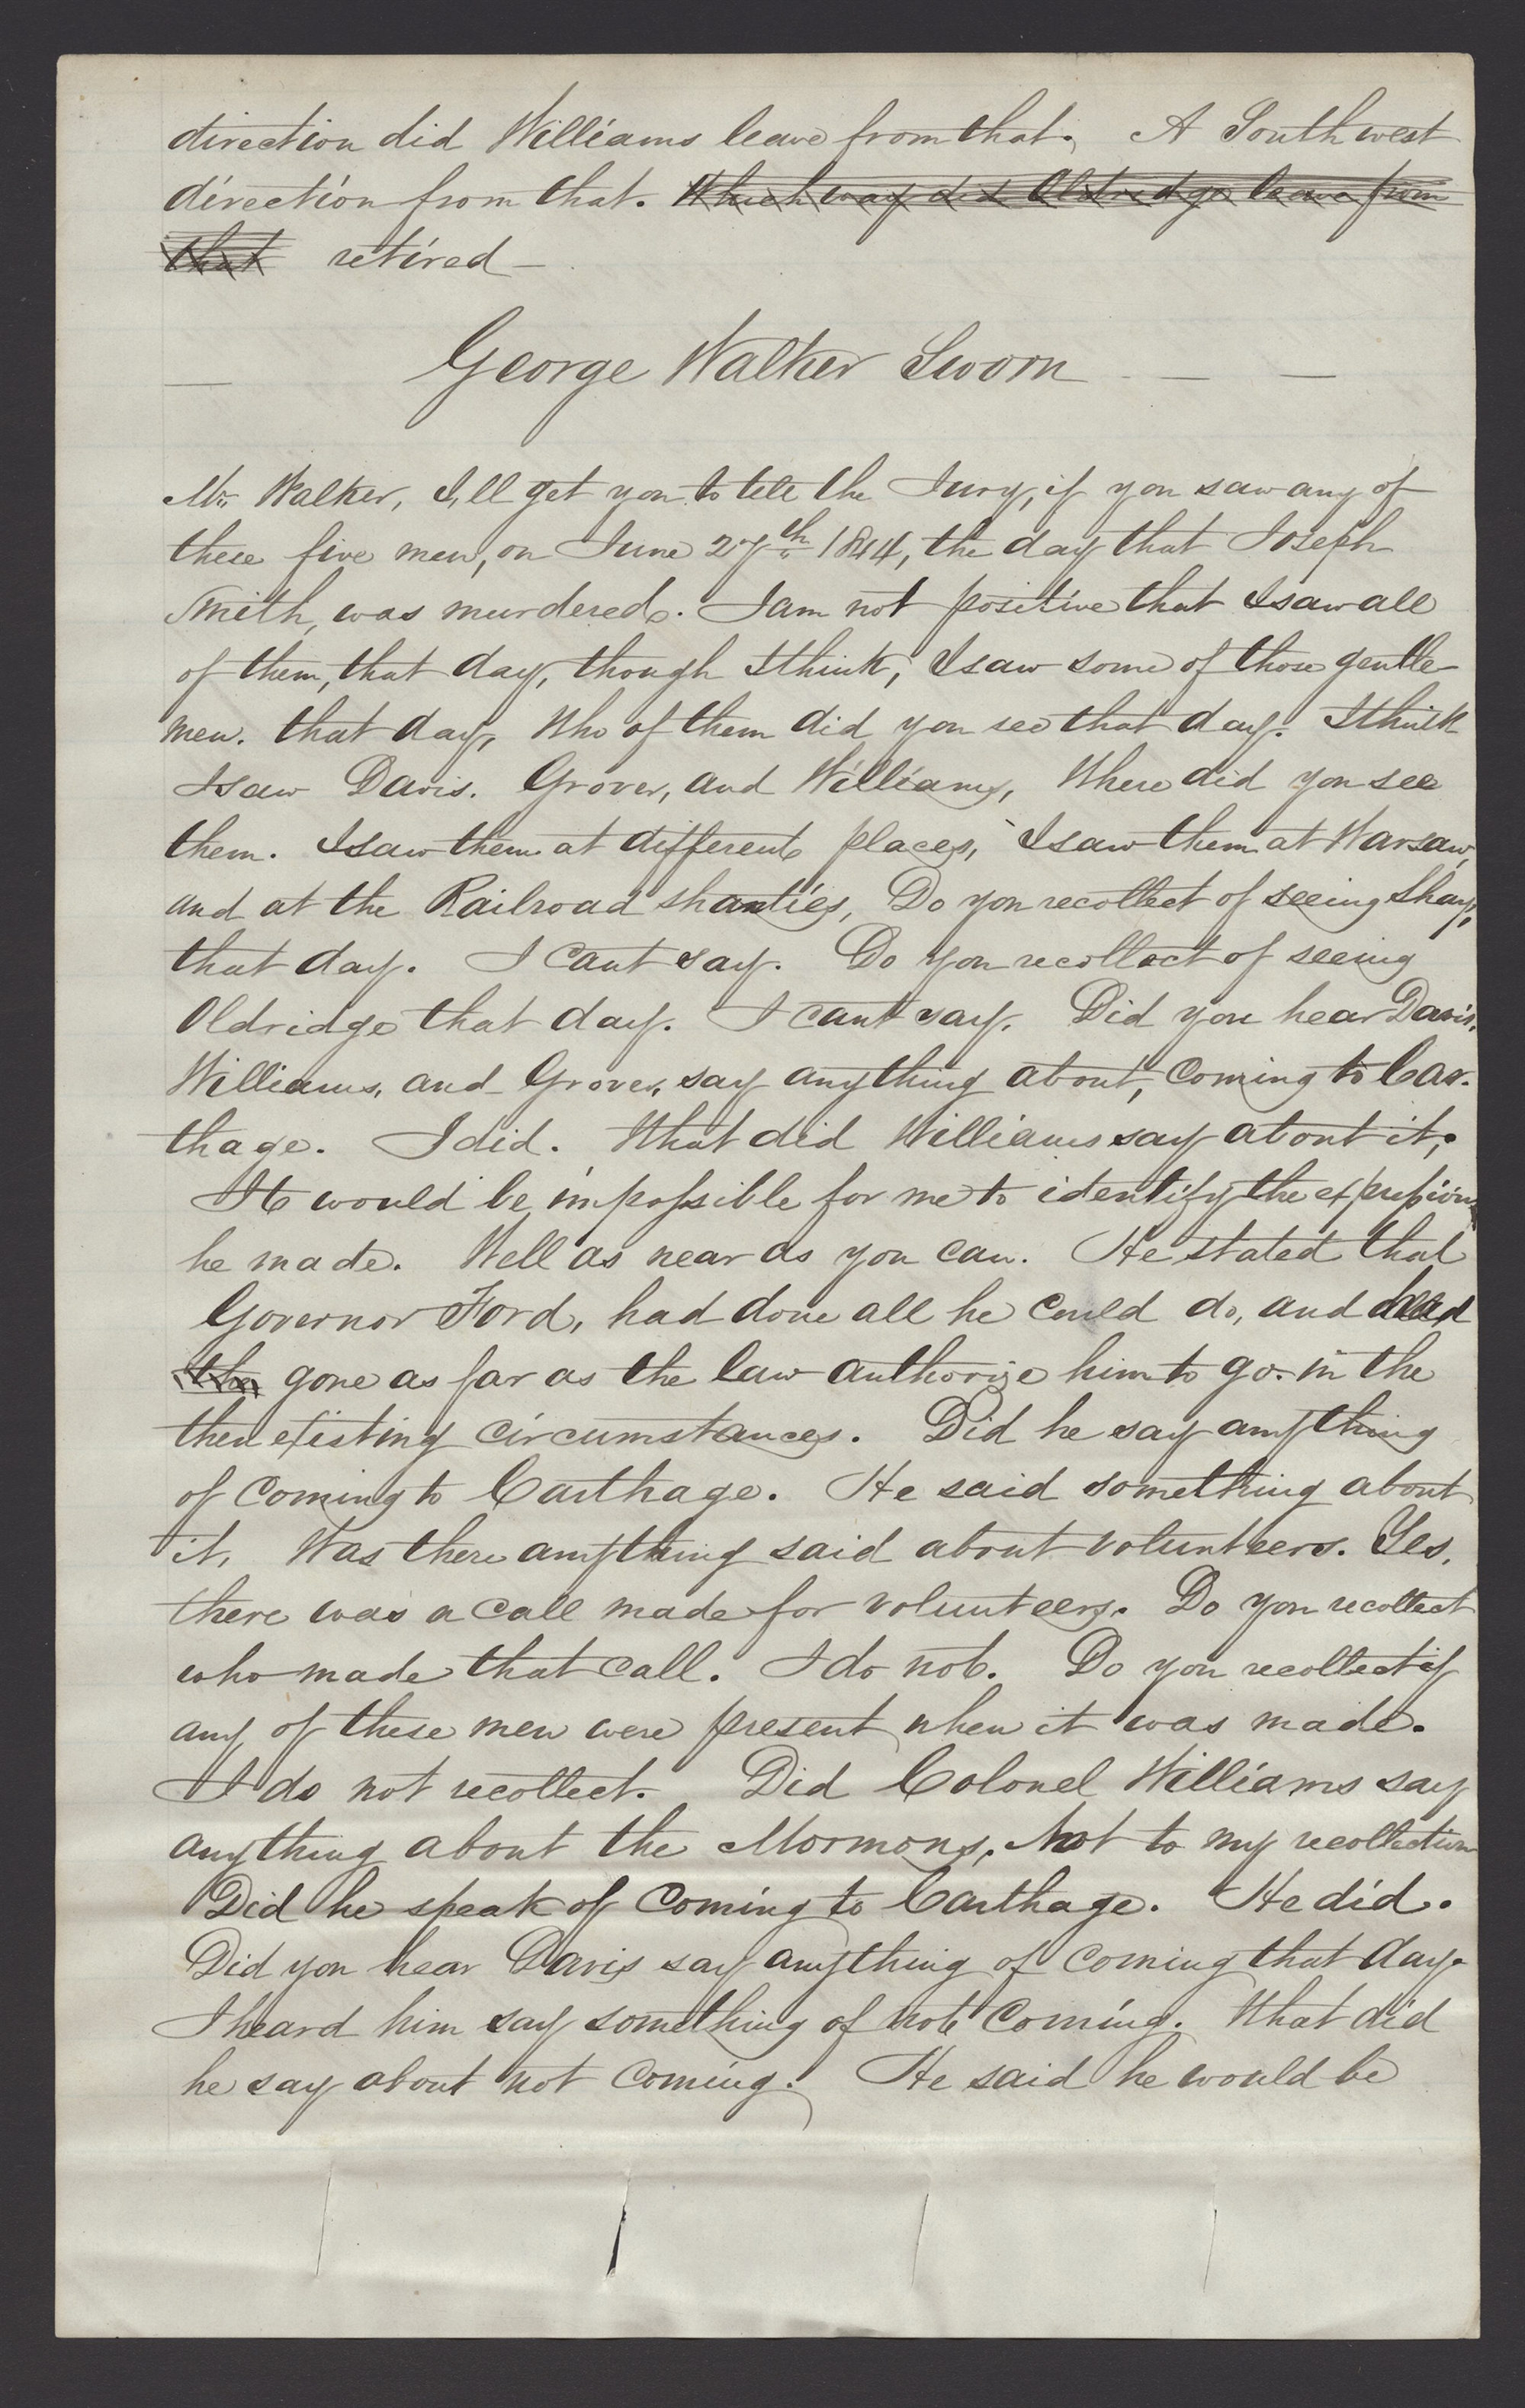 direction did Williams leave from that. A South west
direction from that. Which way did Oldridge leave from
that retired —
George Walker Sworn — —
Mr. Walker, I,ll get you to tell the Jury, if you saw any of
these five men, on June 27th 1844, the day that Joseph
Smith, was murdered. I am not positive that I saw all
of them, that day, though I think, I saw some of those gentle-
men. that day, Who of them did you see that day. I think
I saw Davis. Grover, and Williams, Where did you see
them. I saw them at different places, I saw them at Warsaw,
and at the Railroad shanties, Do you recollect of seeing Sharp,
that day. I cant say. Do you recollect of seeing
Oldridge that day. I cant say. Did you hear Davis,
Williams, and Grover, say anything about, coming to Car-
thage. I did. What did Williams say about it,
It would be impossible for me to identify the expressions
he made. Well as near as you can. He stated that
Governor Ford, had done all he could do, and had
the gone as far as the law authorize him to go. in the
then existing circumstances. Did he say anything
of coming to Carthage. He said something about
it, Was there anything said about volunteers. Yes,
there was a call made for volunteers. Do you recollect
who made that call. I do not. Do you recollect if
any of these men were present when it was made.
I do not recollect. Did Colonel Williams say
anything about the Mormons. Not to my recollection
Did he speak of coming to Carthage. He did.
Did you hear Davis say anything of coming that day.
I heard him say something of not coming. What did
he say about not coming. He said he would be